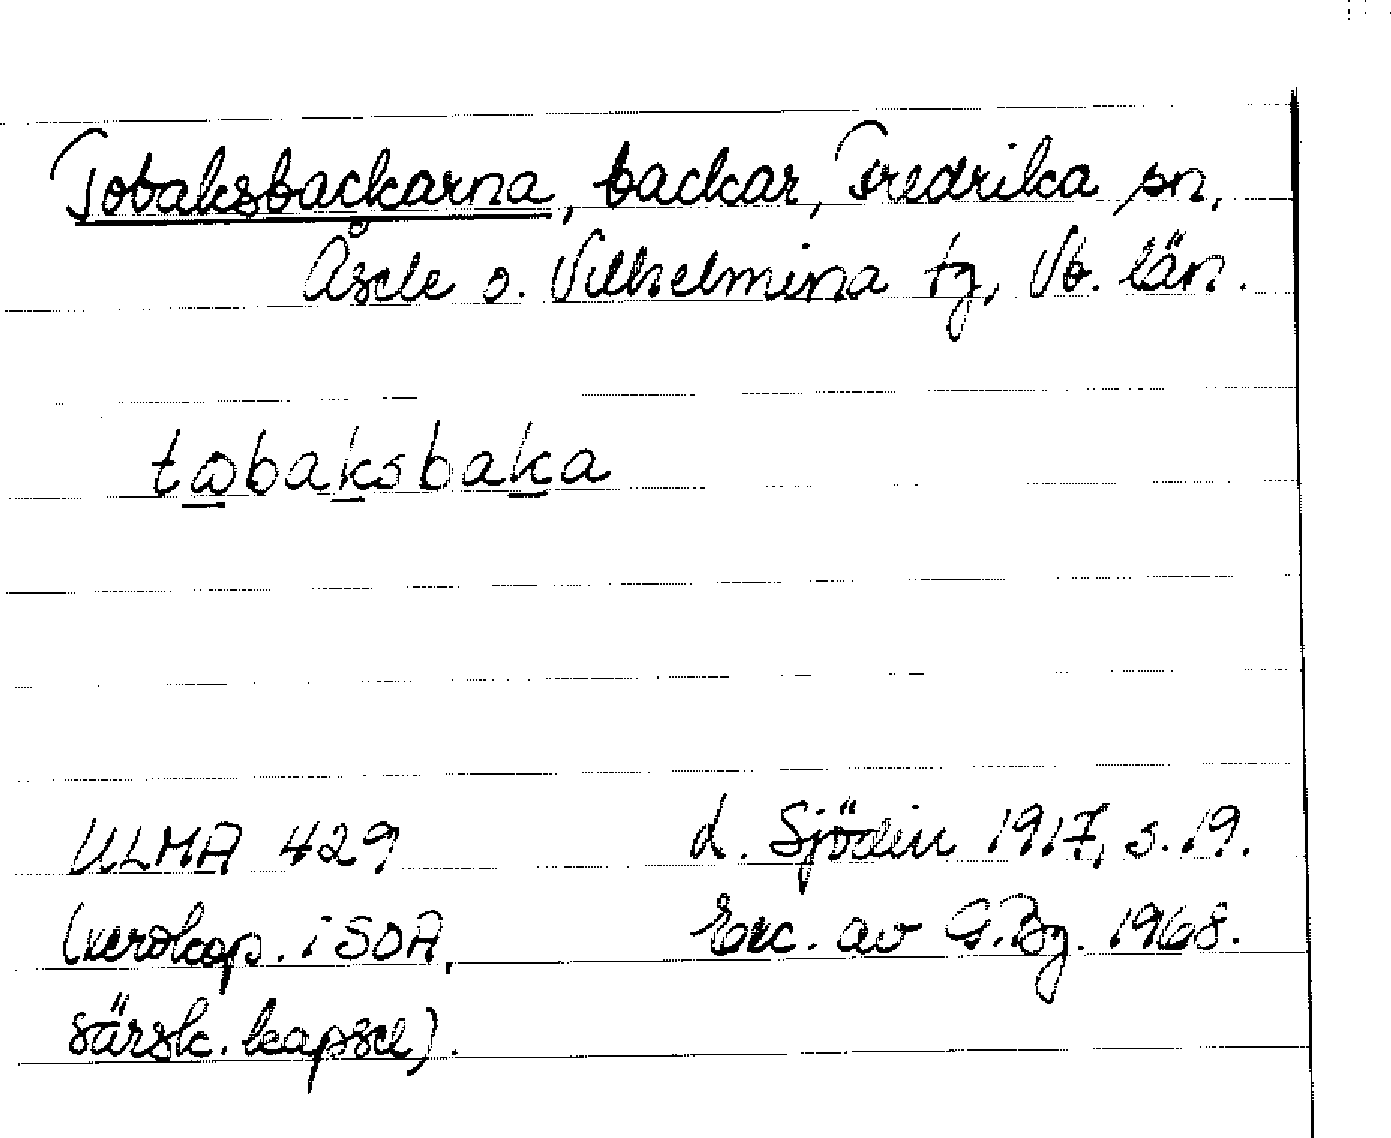 Tobaksbackarna, backar, Fredrika sn,
Åsele o. Vilhelmina tg, Vb. län.
tωbaksbaka
ULMA 429
(xerokop. i SOA,
särsk. kapsel).
L. Sjödin 1917, s. 19.
Exc. av G.Bg. 1968.